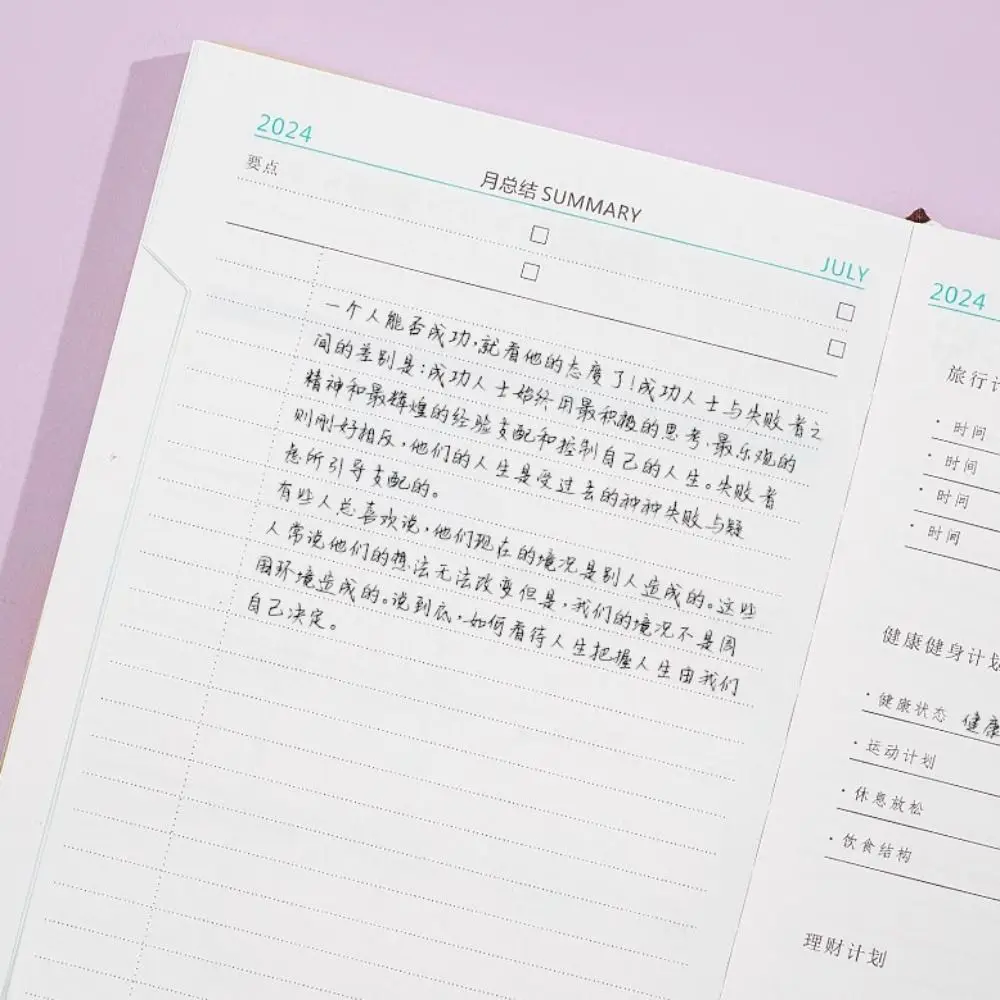 2024
要点
月总结 SUMMARY
JULY
一个人能否成功，就看他的态度了！成功人士与失败者之
间的差别是：成功人士始终用最积极的思考、最乐观的
精神和最辉煌的经验支配和控制自己的人生。失败者
则刚好相反，他们的人生是受过去的种种失败与疑
虑所引导支配的。
有些人总喜欢说，他们现在的境况是别人造成的。这些
人常说他们的想法无法改变但是，我们的境况不是周
围环境造成的。说到底，如何看待人生把握人生由我们
自己决定。
2024
旅行计
· 时间
· 时间
· 时间
· 时间
健康健身计划
· 健康状态 健康
· 运动计划
· 休息放松
· 饮食结构
理财计划